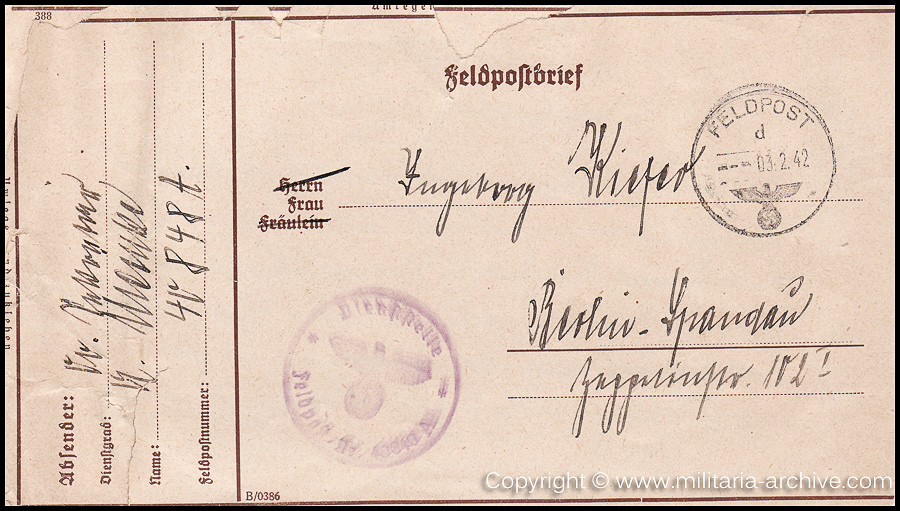 388
Feldpostbrief
FELDPOST
d
03.2.42
Herrn
Frau
Fräulein
Ingeborg Kiefer
Berlin-Spandau
Zeppelinstr. 102 I
Dienststelle
Absender:
Dienstgrad:
Name:
Feldpostnummer:
40 848 A.
B/0386
Copyright © www.militaria-archive.com